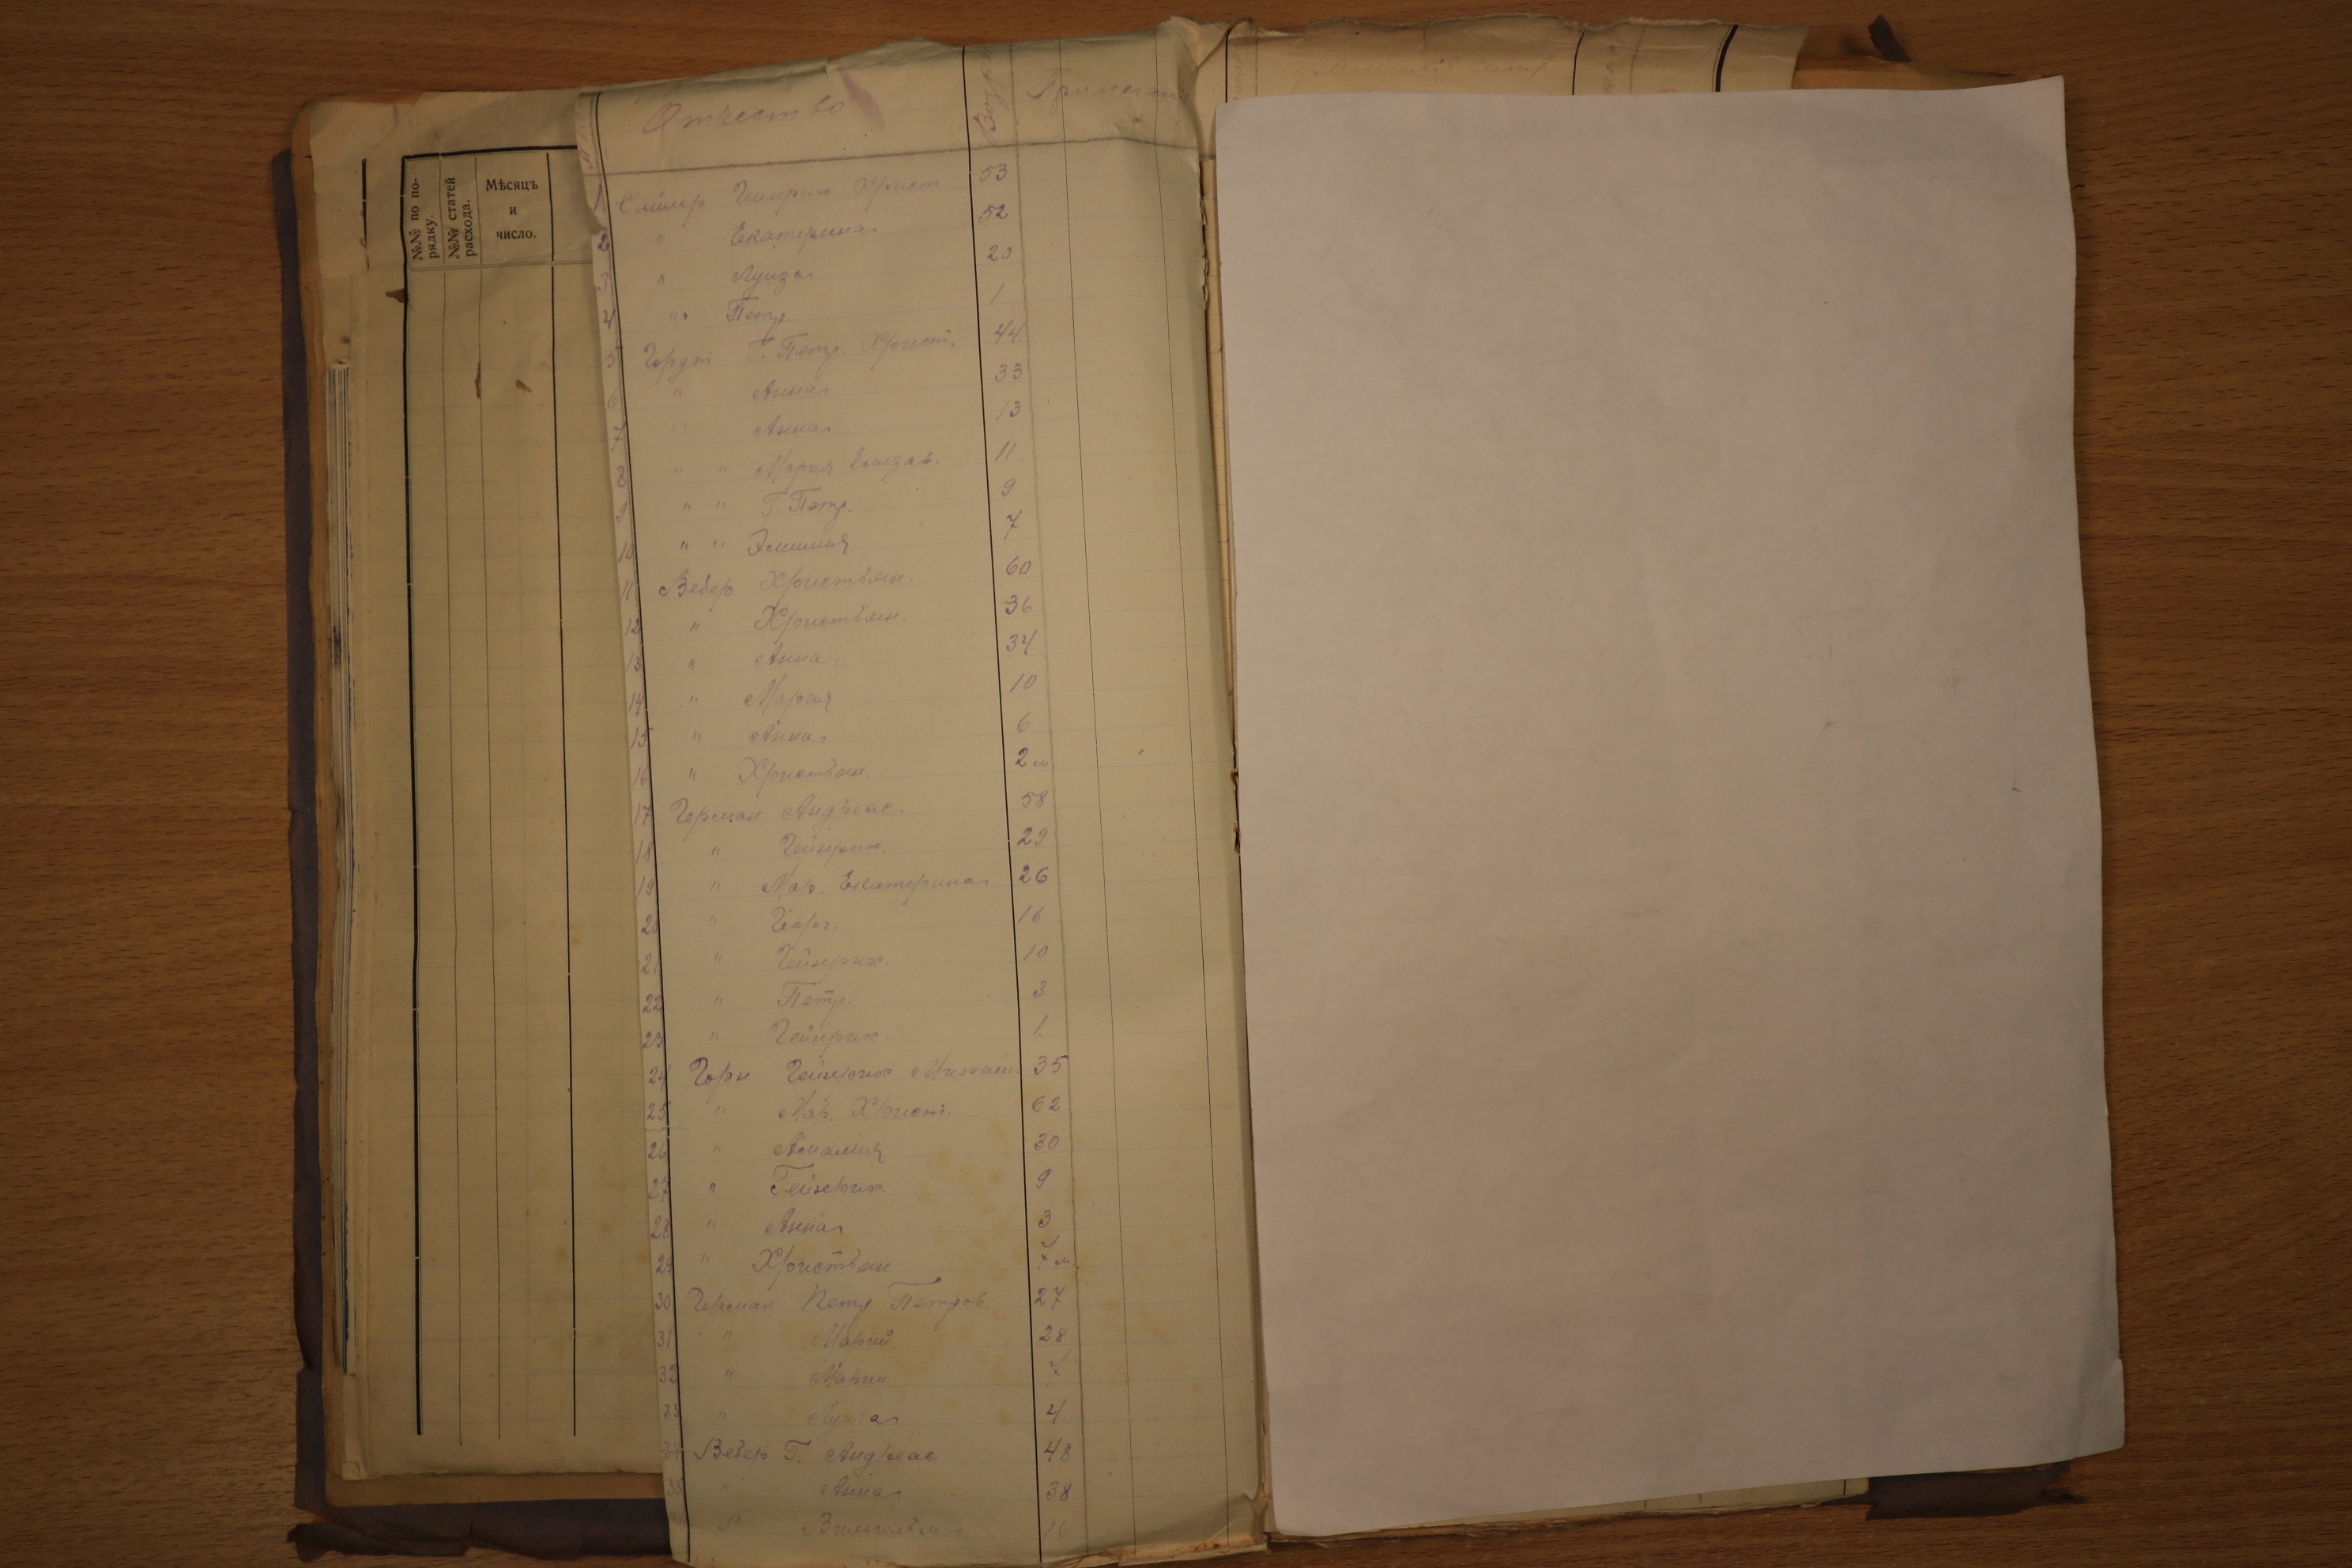 №№ по порядку. №№ статей расхода. Мѣсяцъ и число.
Отчество Возр Примечан
1 Геинрих Христ. 53
2 " Екатерина 52
3 " Луиза 20
4 " Петр. 1
5 Г. Петр. Христ. 44
6 " Анна 33
7 " Анна 13
8 " " Мария Елизав. 11
9 " " Г. Петр. 9
10 " " Эмилия 7
11 Вебер Христьян. 60
12 " Христьян. 36
13 " Анна. 34.
14 " Мария 10
15 " Анна 6
16 " Христьян. 2 м
17 Герман Андреас. 58
18 " Гейнрих. 29
19 " Мар. Екатерина 26
20 " Георг. 16
21 " Гейнрих. 10
22 " Петр. 3
23 " Гейнрих. 1.
24 Горн Гейнрих Михаил. 35
25 " Мар. Христ. 62
26 " Амалия 30
27 " Гейнрих. 9
28 " Анна 3
29 " Христьян 7 м.
30 Герман Петр Петров. 27
31 " Марий 28
32 " Мария 7
33 " 4
34 Вебер Г. Андреас 48
35 " Анна 38
" Вильгельм 16